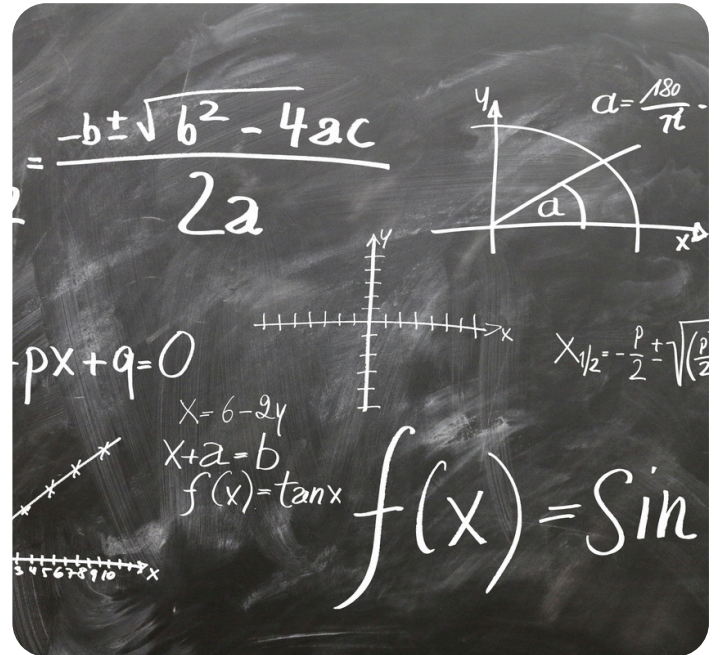 = -b±√b² - 4ac / 2a
2
y
a
x
a= 180/π ·
y
x
px+q=0
X1/2=-p/2±√(p/2
x=6-2y
x+a=b
f(x)=tanx
f(x)=Sin
3 4 5 6 7 8 9 10 x